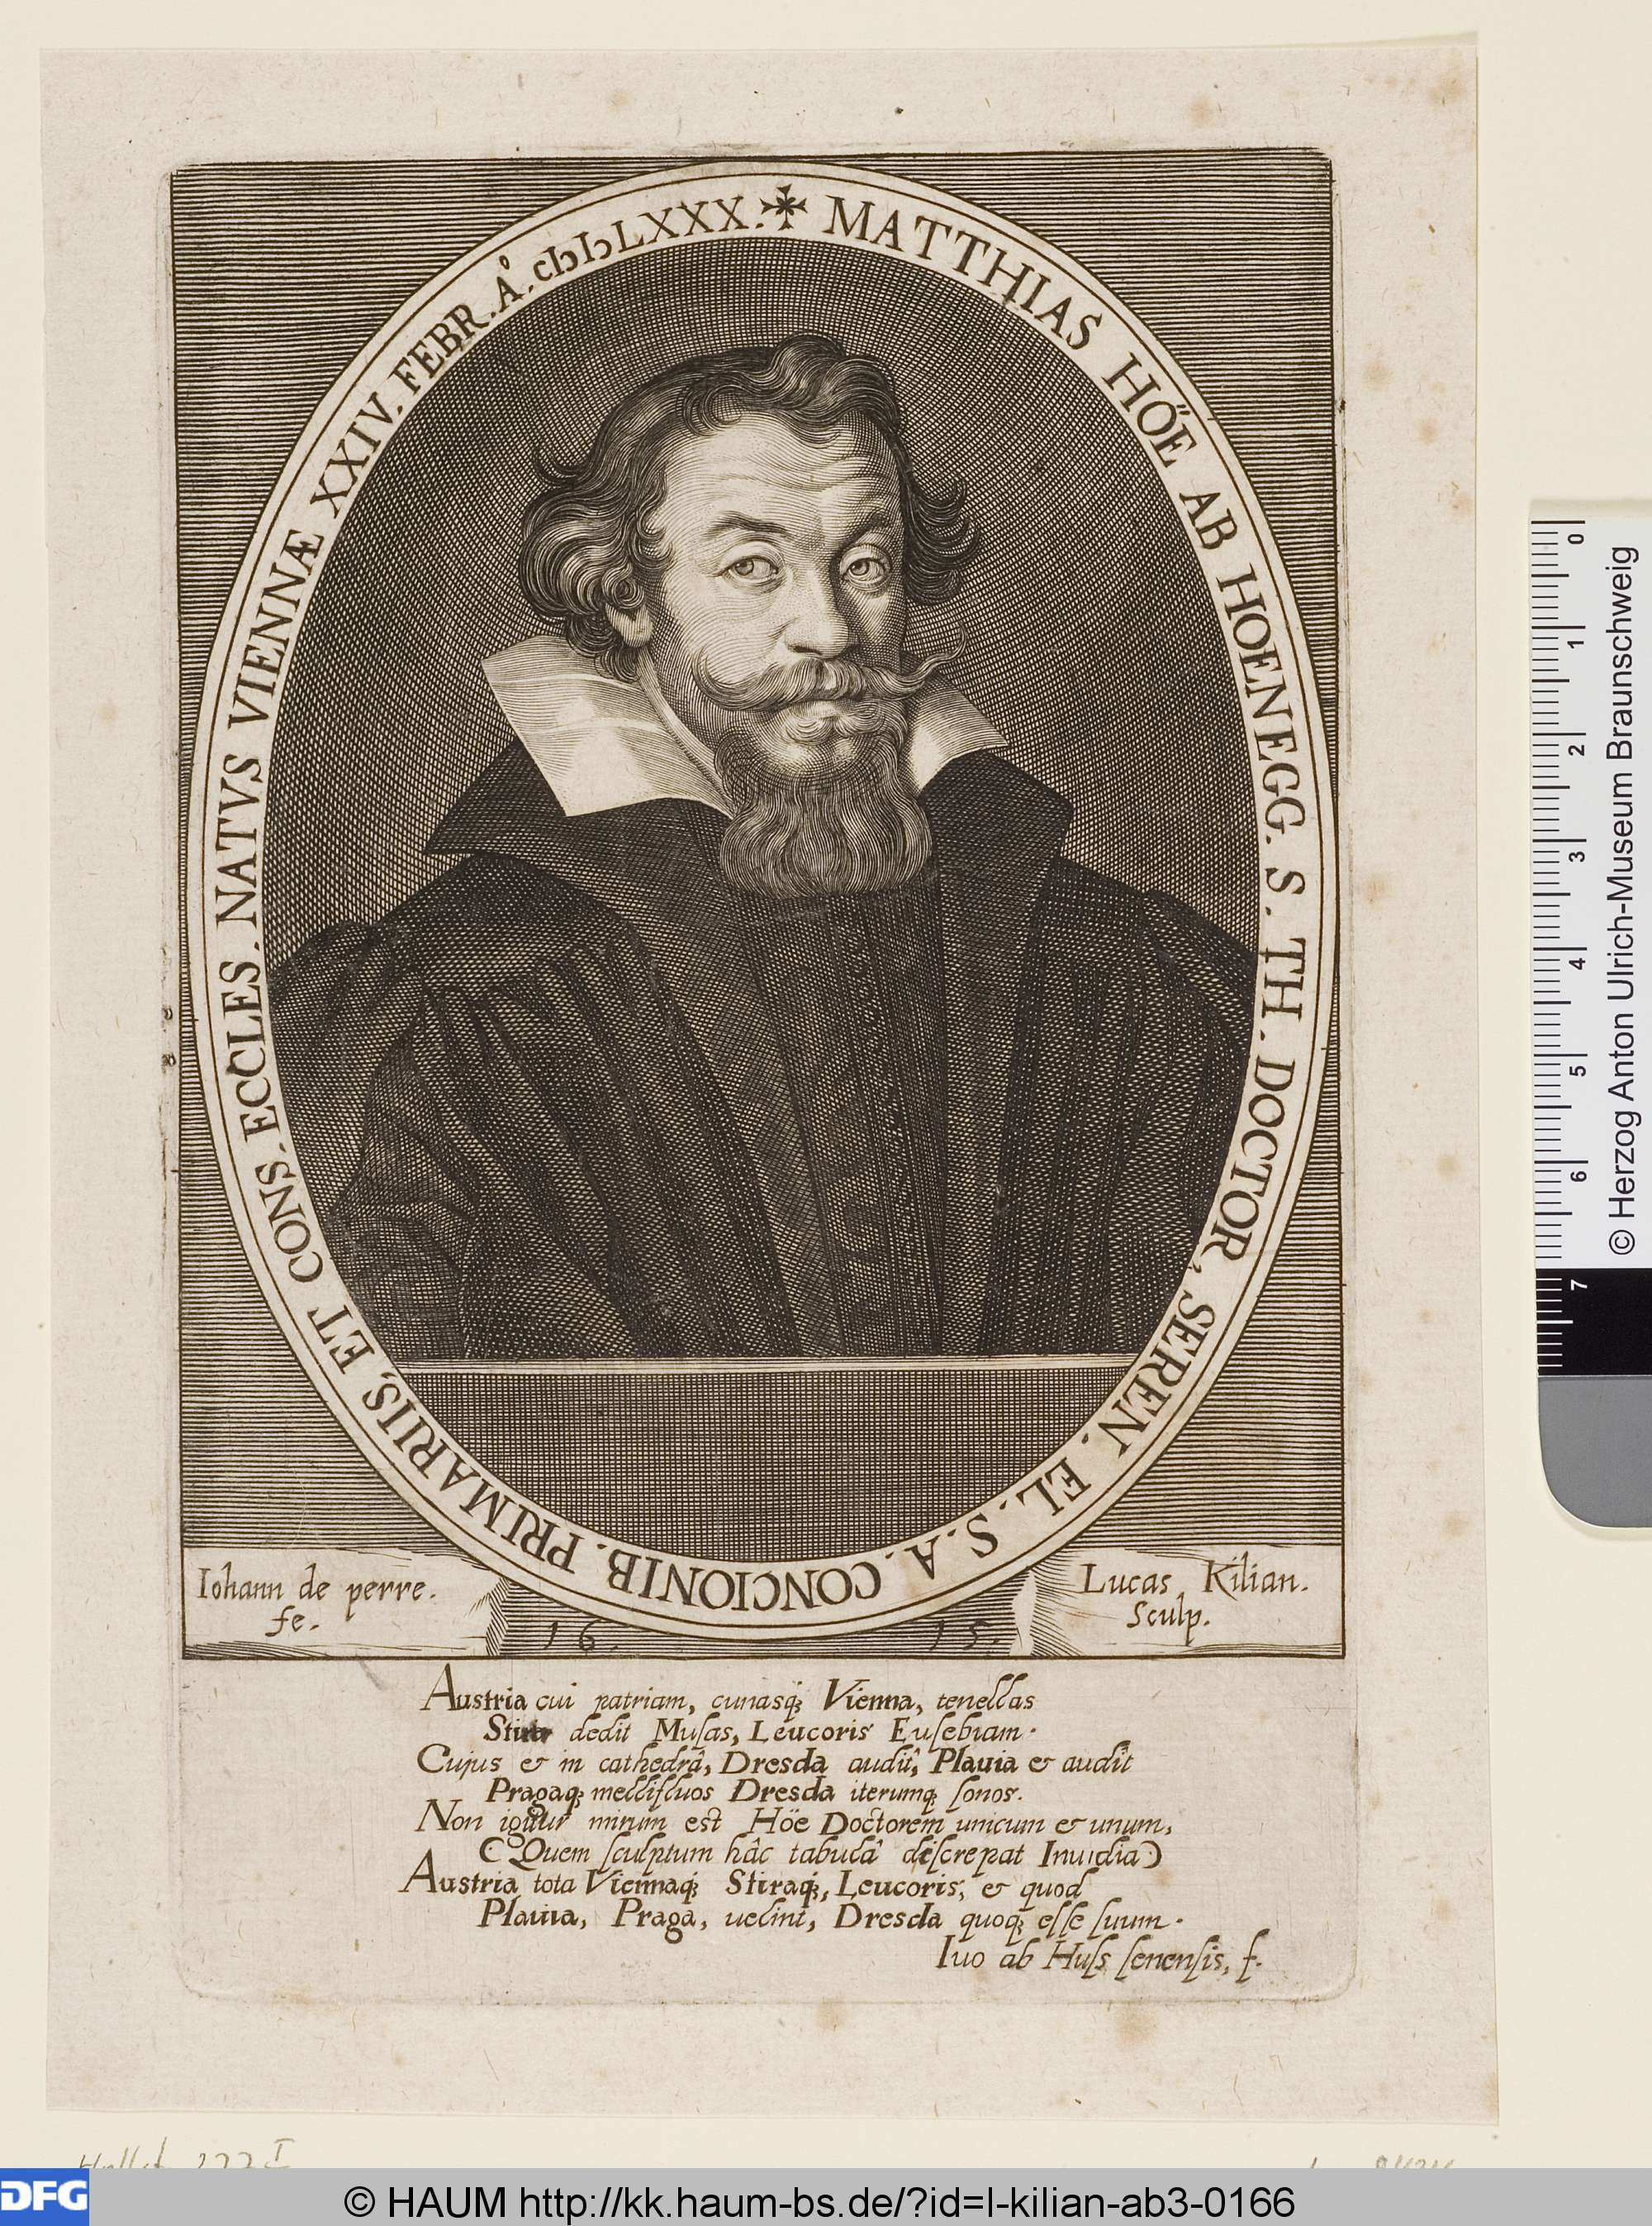 ✠ MATTHIAS HÖE AB HOENEGG. S. TH. DOCTOR, SEREN. EL. S. A. CONCIONIB. PRIMARIIS, ET CONS. ECCLES. NATVS VIENNÆ XXIV. FEBR. Å. cIↄIↄLXXX.
Iohann de perre.
fe.
Lucas Kilian.
Sculp.
16. 15.
Austria cui patriam, cunasq; Vienna, tenellas
Stira dedit Muſas, Leucoris Euſebiam.
Cujus & in cathedrâ, Dresda audit, Plauia & audit
Pragaq; mellifluos Dresda iterumq; ſonos.
Non igitur mirum est Höe Doctorem unicum & unum,
(Quem ſculptum hâc tabulâ diſcrepat Inuidia)
Austria tota Viennaq; Stiraq;, Leucoris, & quod
Plauia, Praga, uelint, Dresda quoq; eſſe ſuum.
Iuo ab Huſs ſenenſis, f.
0 1 2 3 4 5 6 7
© Herzog Anton Ulrich-Museum Braunschweig
DFG
© HAUM http://kk.haum-bs.de/?id=l-kilian-ab3-0166